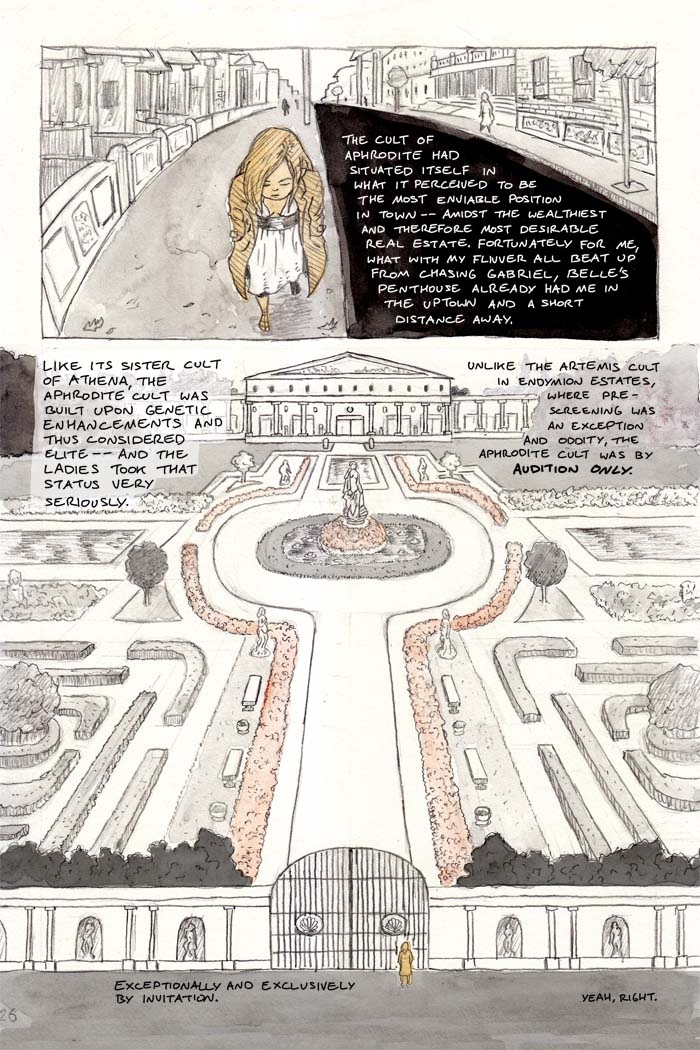 THE CULT OF
APHRODITE HAD
SITUATED ITSELF IN
WHAT IT PERCEIVED TO BE
THE MOST ENVIABLE POSITION
IN TOWN -- AMIDST THE WEALTHIEST
AND THEREFORE MOST DESIRABLE
REAL ESTATE. FORTUNATELY FOR ME,
WHAT WITH MY FLIVVER ALL BEAT UP
FROM CHASING GABRIEL, BELLE'S
PENTHOUSE ALREADY HAD ME IN
THE UPTOWN AND A SHORT
DISTANCE AWAY.
LIKE ITS SISTER CULT
OF ATHENA, THE
APHRODITE CULT WAS
BUILT UPON GENETIC
ENHANCEMENTS AND
THUS CONSIDERED
ELITE -- AND THE
LADIES TOOK THAT
STATUS VERY
SERIOUSLY.
UNLIKE THE ARTEMIS CULT
IN ENDYMION ESTATES,
WHERE PRE-
SCREENING WAS
AN EXCEPTION
AND ODDITY, THE
APHRODITE CULT WAS BY
AUDITION ONLY.
EXCEPTIONALLY AND EXCLUSIVELY
BY INVITATION.
YEAH, RIGHT.
26